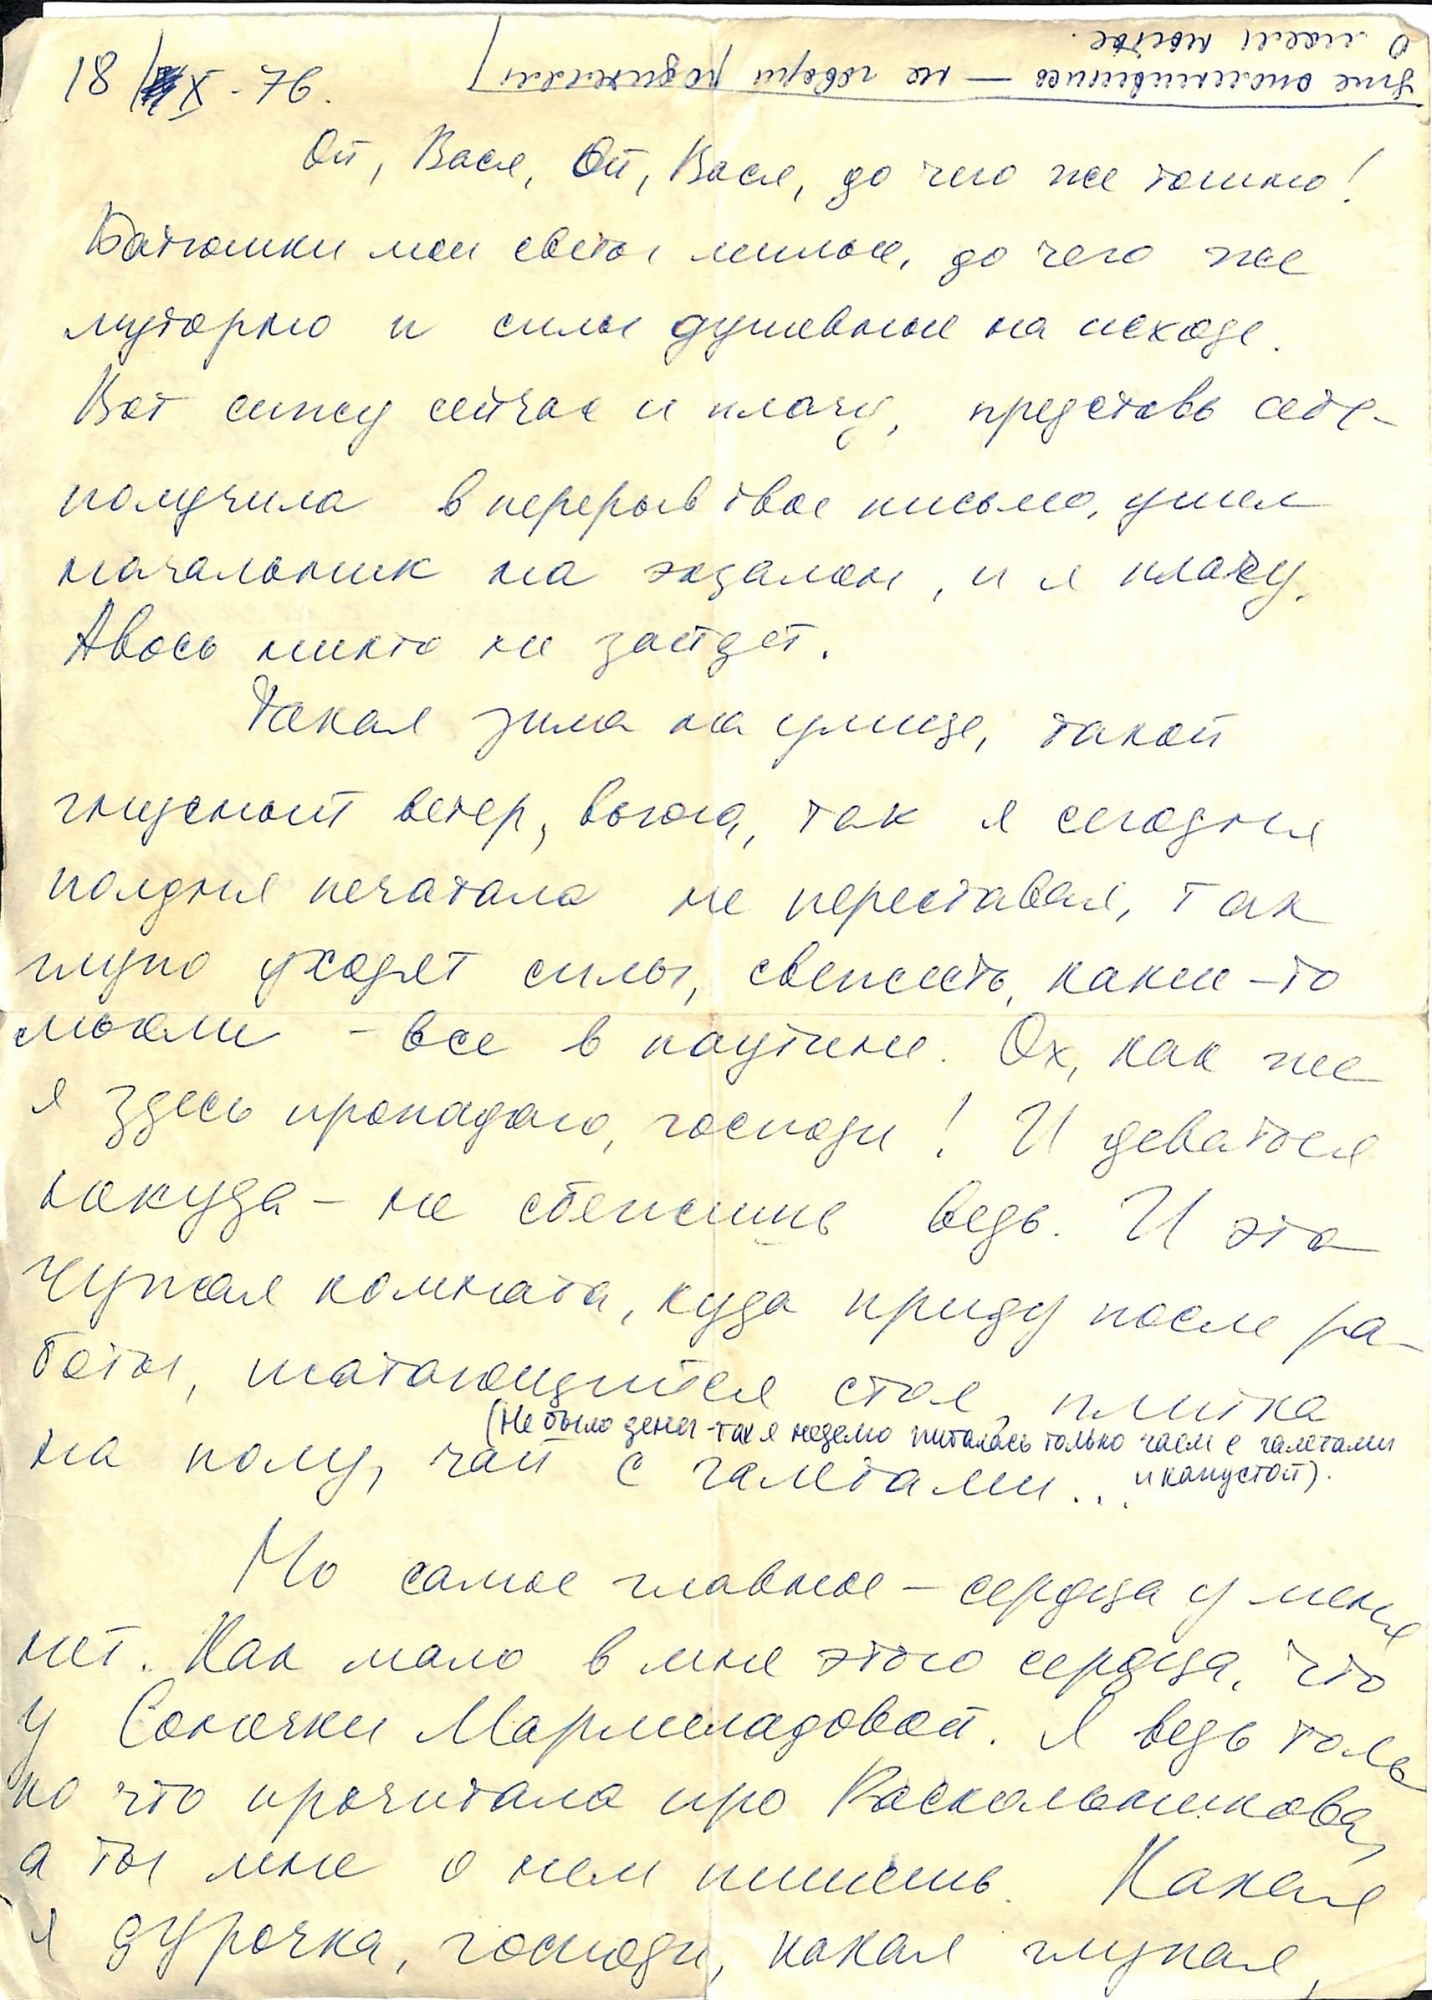 18/X - 76.
Уже опомнившись — не говори родителям
о моем нытье.
Ой, Вася, Ой, Вася, до чего же тошно!
Батюшки мои светы милые, до чего же
муторно и силы душевные на исходе.
Вот сижу сейчас и плачу, представь себе –
получила в перерыв твое письмо, ушел
начальник на экзамен, и я плачу.
Авось никто не зайдет.
Такая зима на улице, такой
гнусный ветер, вьюга, так я сегодня
полдня печатала не переставая, так
глупо уходят силы, свежесть, какие-то
мысли – все в паутине. Ох, как же
я здесь пропадаю, господи! И деваться
некуда – не сбежишь ведь. И эта
чужая комната, куда приду после ра-
боты, шатающийся стол, плитка
(Не было денег – так я неделю питалась только чаем с галетами
и капустой).
на полу, чай с галетами...
Но самое главное – сердца у меня
нет. Как мало в мне этого сердца, что
у Сонечки Мармеладовой. Я ведь толь
ко что прочитала про Раскольникова,
а ты мне о нем пишешь. Какая
я дурочка, господи, какая глупая,